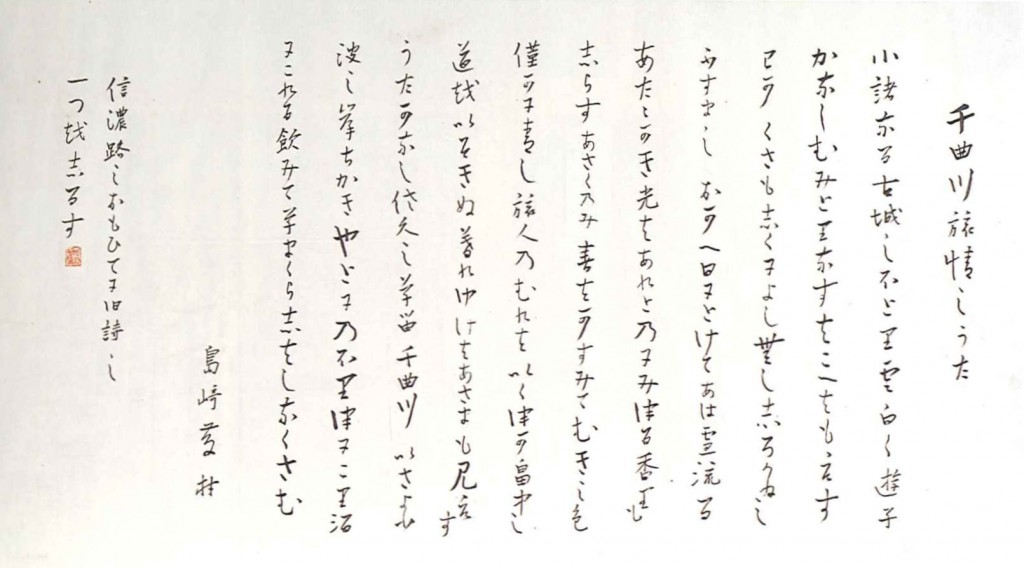 千曲川旅情のうた
小諸なる古城のほとり雲白く遊子
かなしむみとりなすはこへはもえす
わかくさもしくによしなししろかねの
ふすまのおかへ日にとけてあは雪流る
あたゝかき光はあれとのにみつる香も
しらすあさくのみ春はかすみてむきの色
僅かに青し旅人のむれはいくつか畠中の
道をいそきぬ暮れゆけはあさまも見えす
うたかなし佐久の草笛千曲川いさよふ
波の岸ちかきやとにのほりつにこり酒
にこれる飲みて草まくらしはしなくさむ
島崎藤村
信濃路のおもひてに旧詩の
一つをしるす